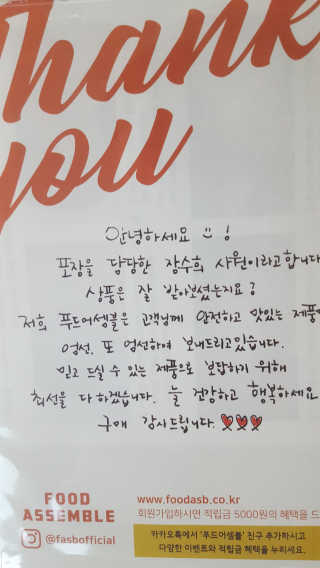 Thank
you
안녕하세요 !
포장을 담당한 장수희 사원이라고합니다
상품은 잘 받아보셨는지요?
저희 푸드어셈블은 고객님께 안전하고 맛있는 제품
엄선, 또 엄선하여 보내드리고있습니다.
믿고 드실 수 있는 제품으로 보답하기 위해
최선을 다 하겠습니다. 늘 건강하고 행복하세요
구매 감사드립니다.
FOOD
ASSEMBLE
@fasbofficial
www.foodasb.co.kr
회원가입하시면 적립금 5000원의 혜택을 드
카카오톡에서 '푸드어셈블' 친구 추가하시고
다양한 이벤트와 적립금 혜택을 누리세요.